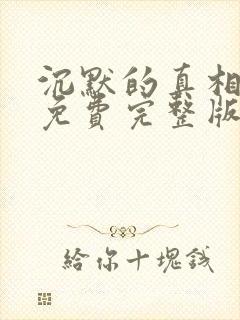 沉默的真相
免費完整版
給你十塊錢